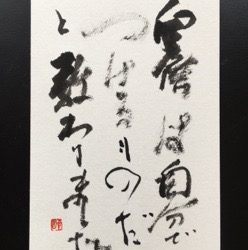 霊階は自分で
つけるものだ
と教わりました